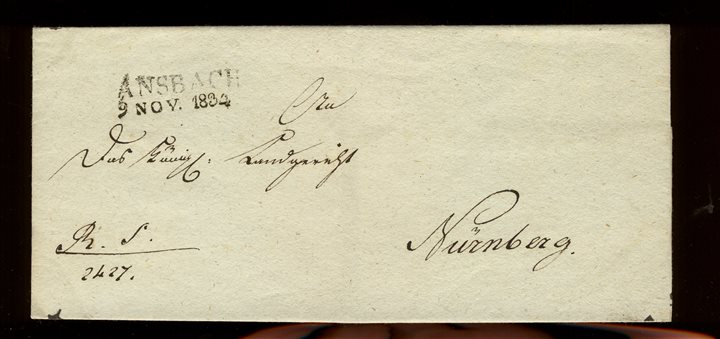 ANSBACH
9 NOV. 1834
An
Das Königl: Landgericht
Nürnberg.
R. S.
2427.